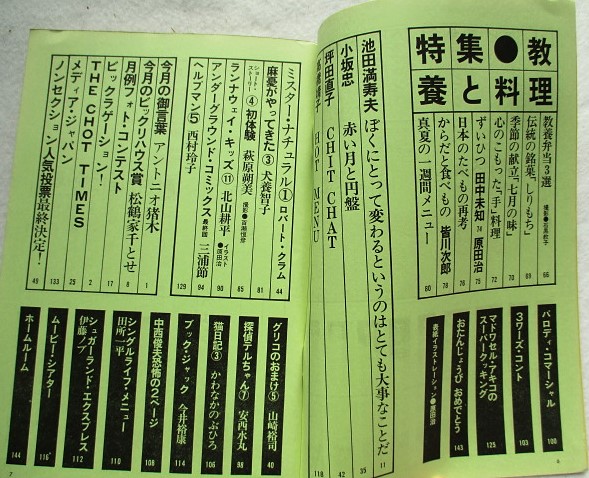 特集●教養と料理
教養弁当3選
66
伝統の銘菓「しりもち」
69
季節の献立「七月の味」
70
心のこもった「手」料理
72
ずいひつ 田中未知 74 原田治 75
日本のたべもの再考
76
からだと食べもの 皆川次郎
78
真夏の一週間メニュー
80
池田満寿夫 ぼくにとって変わるというのはとても大事なことだ
11
小坂忠 赤い月と円盤
35
坪田直子 CHIT CHAT
42
HOT MENU
118
パロディ・コマーシャル
100
3ワーズ・コント
103
マドマワゼル・アキコのスーパークッキング
125
おたんじょうび おめでとう
143
表紙イラストレーション●原田治
6
ミスター・ナチュラル① ロバート・クラム
44
麻憂がやってきた③ 犬養智子
81
ショート・ストーリー④ 初体験 萩原朔美
85
ランナウェイ・キッズ⑪ 北山耕平 イラスト●原田治
90
アンダーグラウンド・コミックス 最終回 三浦節
94
ヘルプマン5 西村玲子
129
今月の御言葉 アントニオ猪木
1
今月のビックリハウス賞
8
月例フォト・コンテスト 松鶴家千とせ
17
ビックラゲーション!
2
THE CHOT TIMES
25
メディア・ジャパン
133
ノンセクション人気投票最終決定!
49
グリコのおまけ⑤ 山崎裕司
40
探偵テルちゃん⑦ 安西水丸
98
猫日記③ かわなかのぶひろ
106
ブック・ジャック 今井裕康
114
中西俊夫恐怖の2ページ
108
シングルライフ・メニュー 田所一平
110
シュガーランド・エクスプレス 伊藤ノブ
112
ムービー・シアター
116
ホームルーム
144
7